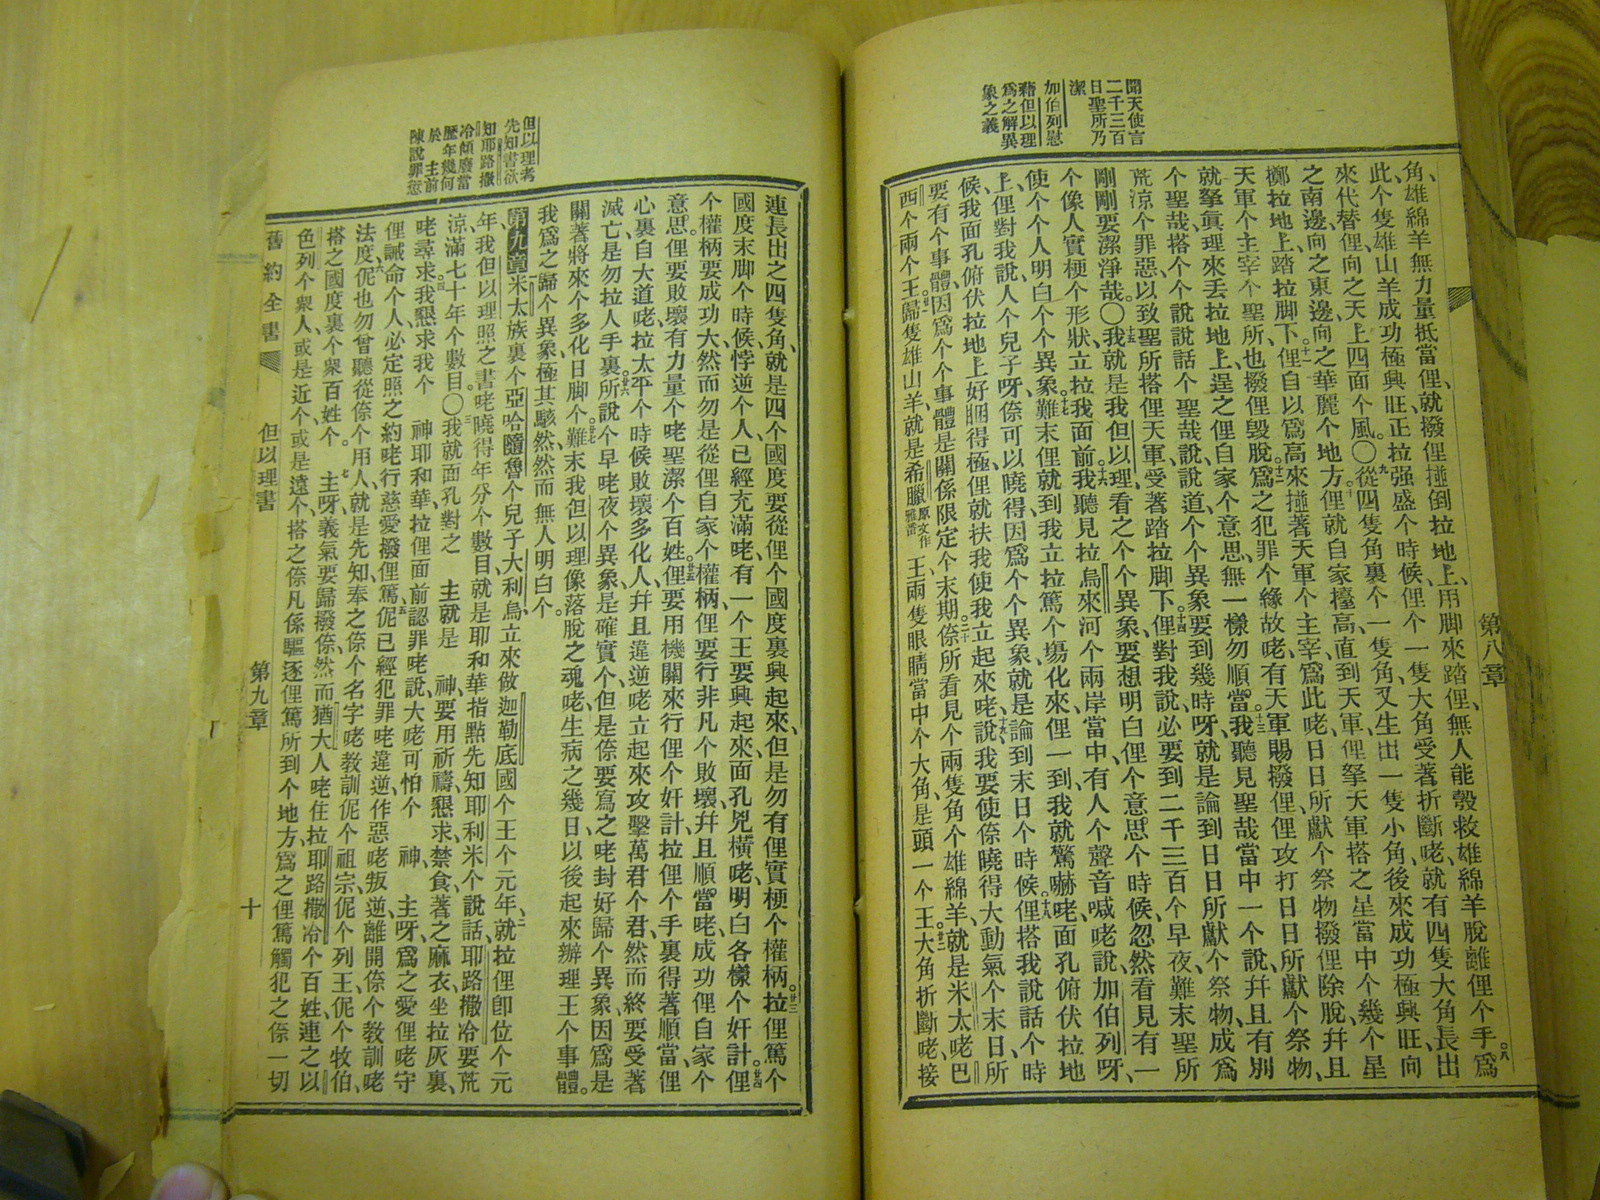 聞天使言
二千三百
日聖所乃
潔
加伯列慰
藉但以理
爲之解異
象之義
第八章
角、雄綿羊無力量抵當俚、就撥俚搕倒拉地上、用脚來踏俚、無人能彀救雄綿羊脫離俚个手、爲
此个隻雄山羊成功極興旺、正拉强盛个時候、俚个一隻大角受著折斷咾、就有四隻大角長出
來代替俚、向之天上四面个風。〇從四隻角裏个一隻角、又生出一隻小角、後來成功極興旺、向
之南邊、向之東邊、向之華麗个地方。俚就自家擡高、直到天軍、俚拏天軍搭之星當中个幾个星
擲拉地上、踏拉脚下。俚自以爲高、來搕著天軍个主宰、爲此咾日日所獻个祭物撥俚除脫、幷且
天軍个主宰个聖所也撥俚毀脫、爲之犯罪个緣故咾、有天軍賜撥俚、攻打日日所獻个祭物、
就拏眞理來丟拉地上、逞之俚自家个意思、無一樣勿順當。我聽見聖哉當中一个說、幷且有別
个聖哉、搭个个說說話个聖哉說、說道、个个異象要到幾時呀、就是論到日日所獻个祭物、成爲
荒涼个罪惡、以致聖所搭俚天軍、受著踏拉脚下。俚對我說、必要到二千三百个早夜、難末聖所
剛剛要潔淨哉。〇我就是我但以理看之个个異象、要想明白俚个意思个時候、忽然看見有一
个像人實梗个形狀立拉我面前。我聽見拉烏來河个兩岸當中、有人个聲音喊咾說、加伯列呀、
使个个人明白个个異象、難末俚就到我立拉篤个場化來、俚一到我就驚嚇咾、面孔俯伏拉地
上、俚對我說、人个兒子呀、倷可以曉得、因爲个个異象、就是論到末日个時候。俚搭我說話个時
候、我面孔俯伏拉地上好睏得極、俚就扶我使我立起來咾說、我要使倷曉得大動氣个末日所
要有个事體、因爲个个事體是關係限定个末期。倷所看見个兩隻角个雄綿羊、就是米太咾巴
西个兩个王。歸隻雄山羊、就是希臘原文作雅番王、兩隻眼睛當中个大角、是頭一个王。大角折斷咾、接
連長出之四隻角、就是四个國度、要從俚个國度裏興起來、但是勿有俚實梗个權柄。拉俚篤个
國度末脚个時候、悖逆个人、已經充滿咾、有一个王要興起來、面孔兇橫咾、明白各樣个奸計。俚
个權柄要成功大、然而勿是從俚自家个權柄、俚要行非凡个敗壞、幷且順當咾成功俚自家个
意思。俚要敗壞有力量个咾聖潔个百姓。俚要用機關來行俚个奸計、拉俚个手裏得著順當、俚
心裏自大道咾、拉太平个時候敗壞多化人、幷且違逆咾立起來攻擊萬君个君、然而終要受著
滅亡、是勿拉人手裏。所說个早咾夜个異象、是確實个、但是倷要寫之咾封好歸个異象、因爲是
關著將來个多化日脚个。難末我但以理像落脫之魂咾、生病之幾日、以後起來辦理王个事體。
我爲之歸个異象、極其駭然、然而無人明白个。
第九章米太族裏个亞哈隨魯个兒子大利烏、立來做迦勒底國个王个元年、就拉俚卽位个元
年、我但以理照之書咾曉得年分个數目、就是耶和華指點先知耶利米个說話、耶路撒冷要荒
涼滿七十年个數目。〇我就面孔對之　主就是　神、要用祈禱、懇求、禁食、著之麻衣、坐拉灰裏、
咾尋求。我懇求我个　神耶和華、拉俚面前認罪咾說、大咾可怕个　神　主呀、爲之愛俚咾守
俚誡命个人、必定照之約咾行慈愛撥俚篤、伲已經犯罪咾違逆作惡咾叛逆、離開倷个教訓咾
法度、伲也勿曾聽從倷个用人、就是先知、奉之倷个名字咾教訓伲个祖宗、伲个列王、伲个牧伯、
搭之國度裏个衆百姓个。　主呀、義氣要歸撥倷、然而猶大人咾住拉耶路撒冷个百姓、連之以
色列个衆人、或是近个、或是遠个、搭之倷凡係驅逐俚篤所到个地方、爲之俚篤觸犯之倷一切
但以理考
先知書欲
知耶路撒
冷傾廢當
歷年幾何
於　主前
陳說罪愆
舊約全書
但以理書
第九章
十